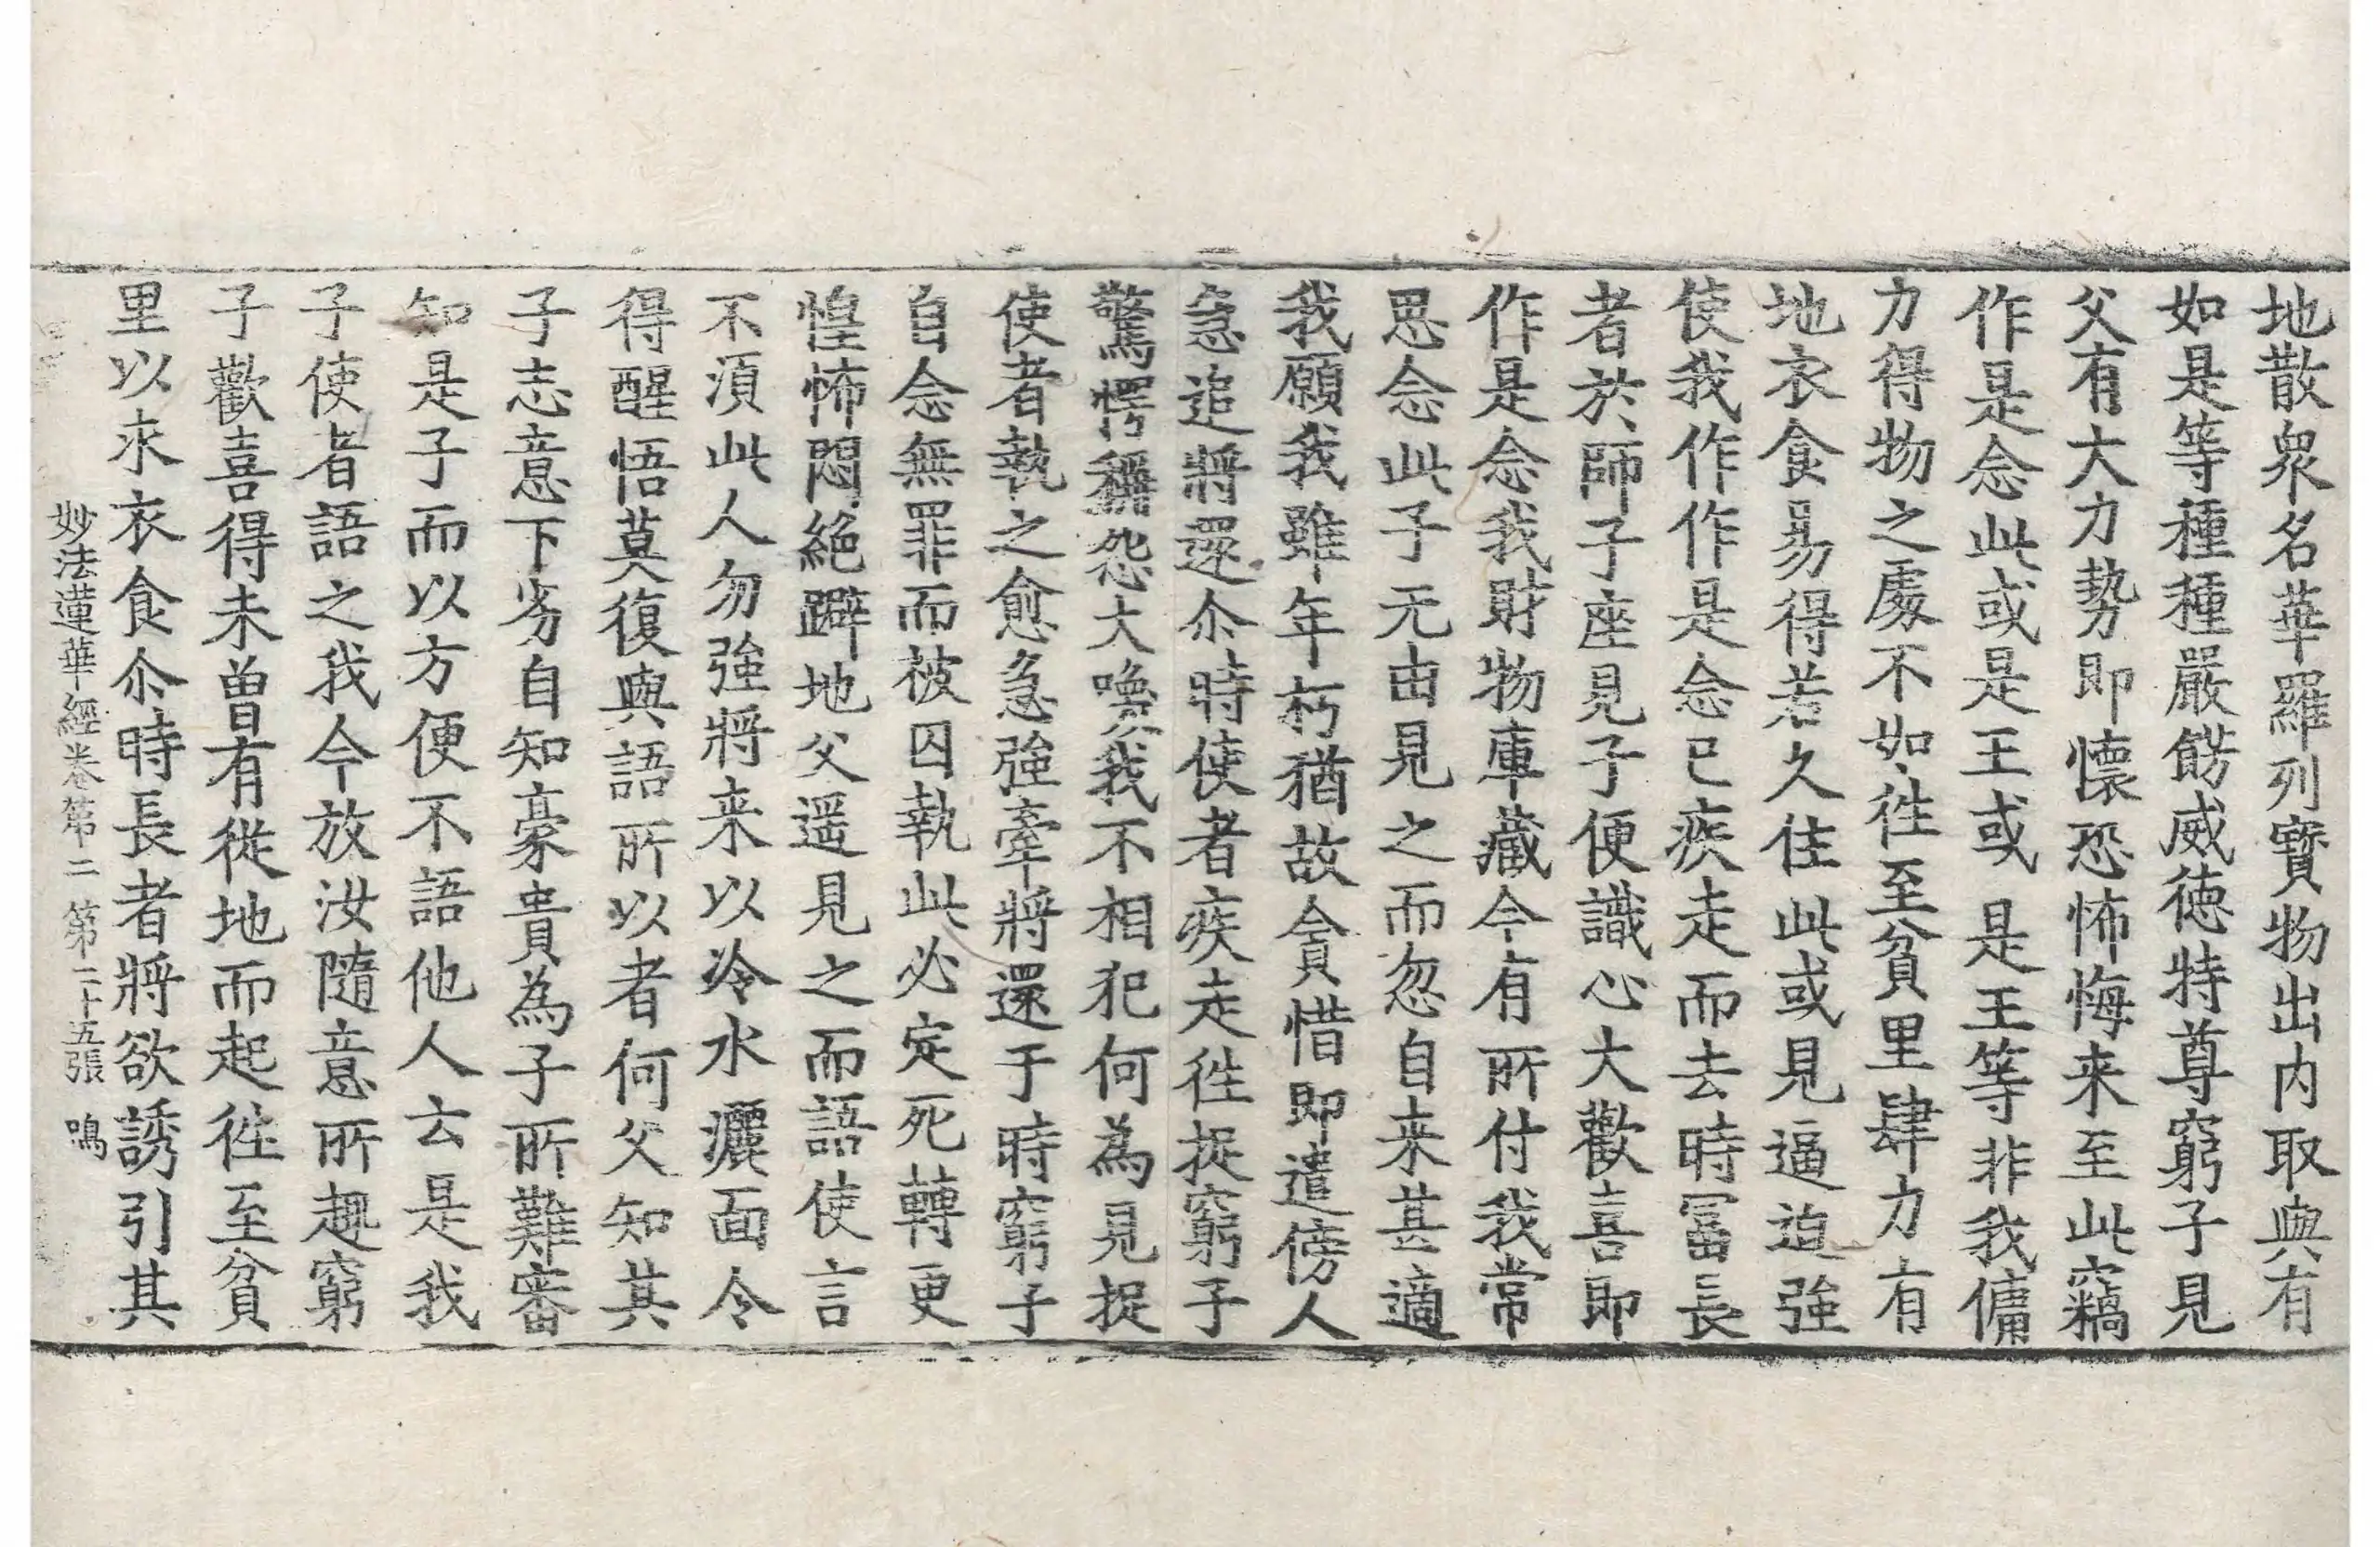 地散衆名華羅列寶物出内取與有
如是等種種嚴餝威徳特尊窮子見
父有大力勢即懷恐怖悔来至此竊
作是念此或是王或是王等非我傭
力得物之處不如徃至貧里肆力有
地衣食易得若久住此或見逼迫強
使我作作是念已疾走而去時冨長
者於師子座見子便識心大歡喜即
作是念我財物庫藏今有所付我常
思念此子无由見之而忽自来甚適
我願我雖年朽猶故貪惜即遣傍人
急追將還尒時使者疾走徃捉窮子
驚愕稱怨大喚我不相犯何為見捉
使者執之愈急強牽將還于時窮子
自念無罪而被囚執此必定死轉更
惶怖悶絶躃地父遥見之而語使言
不湏此人勿強將来以冷水灑面令
得醒悟莫復與語所以者何父知其
子志意下劣自知豪貴為子所難審
知是子而以方便不語他人云是我
子使者語之我今放汝隨意所趣窮
子歡喜得未曽有從地而起徃至貧
里以求衣食尒時長者將欲誘引其
妙法蓮華經卷第二 第二十五張 鳴